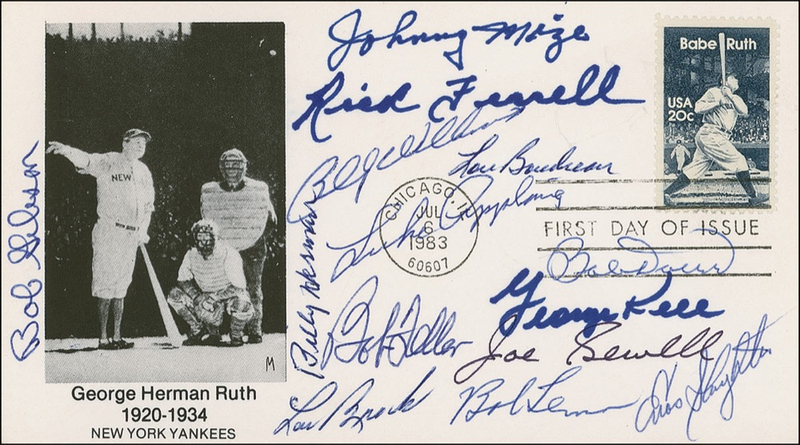 Johnny Mize
Rick Ferrell
Billy Williams
Lou Boudreau
Luke Appling
Bob Gibson
Billy Herman
Bob Feller
George Kell
Joe Sewell
Lou Brock
Bob Lemon
Enos Slaughter
Babe Ruth
USA
20c
CHICAGO, IL
JUL
6
1983
60607
FIRST DAY OF ISSUE
NEW
M
George Herman Ruth
1920-1934
NEW YORK YANKEES